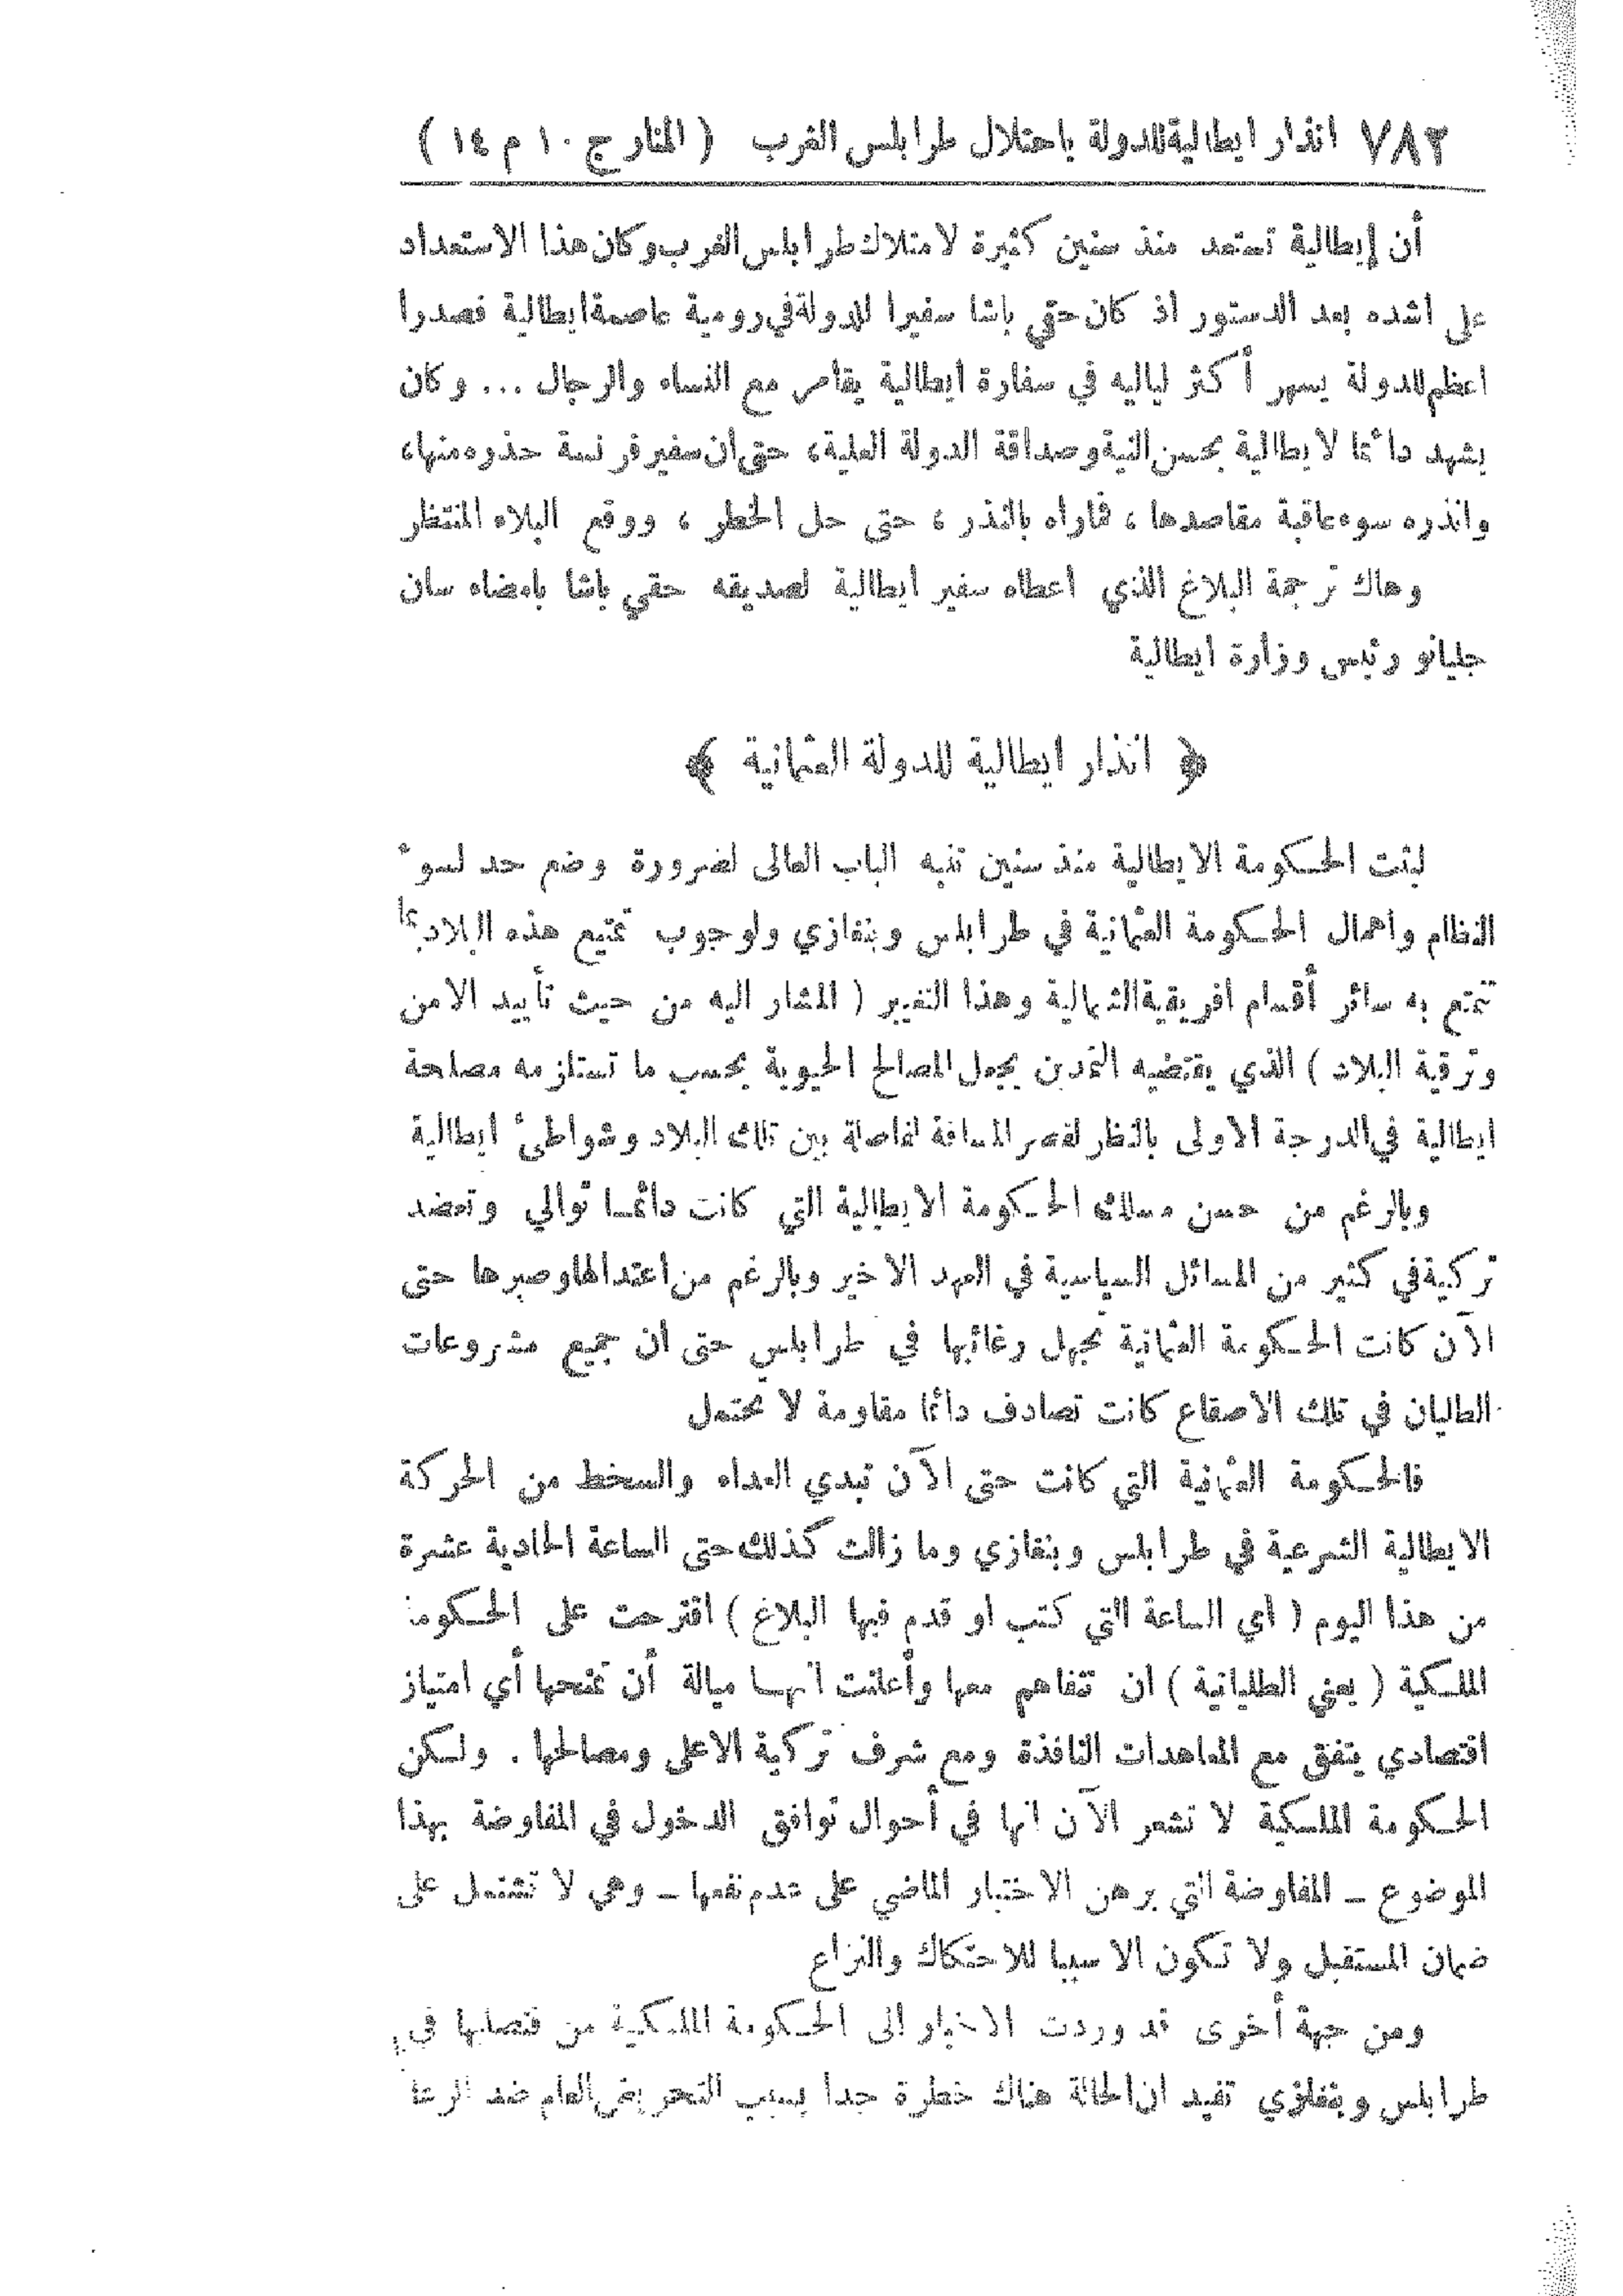 ٧٨٢ انذار ايطالية للدولة باحتلال طرابلس الغرب ( المنار ج ١٠ م ١٤ )
أن إيطالية تستعد منذ سنين كثيرة لامتلاك طرابلس الغرب وكان هذا الاستعداد
على اشده بعد الدستور اذ كان حقي باشا سفيرا للدولة في رومية عاصمة ايطالية فصدرا
اعظم للدولة يسهر أكثر لياليه في سفارة ايطالية يقامر مع النساء والرجال ... وكان
يشهد دائما لايطالية بحسن النية وصداقة الدولة العلية، حتى ان سفير فرنسة حذره منها،
وانذره سوء عاقبة مقاصدها، فماراه بالنذر، حتى حل الخطر، ووقع البلاء المنتظر
وهاك ترجمة البلاغ الذي اعطاه سفير ايطالية لصديقه حقي باشا بامضاء سان
جليانو رئيس وزارة ايطالية
﴿ انذار ايطالية للدولة العثمانية ﴾
لبثت الحكومة الايطالية منذ سنين تنبه الباب العالى لضرورة وضع حد لسوء
النظام واهمال الحكومة العثمانية في طرابلس وبنغازي ولوجوب تمتيع هذه البلاد بما
تتمتع به سائر أقسام افريقية الشمالية وهذا التغيير ( المشار اليه من حيث تأييد الامن
وترقية البلاد ) الذي يقتضيه التمدن يجعل المصالح الحيوية بحسب ما تستلزمه مصلحة
ايطالية في الدرجة الاولى بالنظر لقصر المسافة لفاصلة بين تلك البلاد وشواطئ ايطالية
وبالرغم من حسن مسلك الحكومة الايطالية التي كانت دائما توالي وتعضد
تركية في كثير من المسائل السياسية في العهد الاخير وبالرغم من اعتدالها وصبرها حتى
الآن كانت الحكومة العثمانية تجهل رغائبها في طرابلس حتى ان جميع مشروعات
الطليان في تلك الاصقاع كانت تصادف دائما مقاومة لا تحتمل
فالحكومة العثمانية التي كانت حتى الآن تبدي العداء والسخط من الحركة
الايطالية الشرعية في طرابلس وبنغازي وما زالت كذلك حتى الساعة الحادية عشرة
من هذا اليوم ( اي الساعة التي كتب او قدم فيها البلاغ ) اقترحت على الحكومة
الملكية ( يعني الطليانية ) ان تتفاهم معها وأعلنت انها ميالة أن تمنحها أي امتياز
اقتصادي يتفق مع المعاهدات النافذة ومع شرف تركية الاعلى ومصالحها . ولكن
الحكومة الملكية لا تشعر الآن انها في أحوال توافق الدخول في المفاوضة بهذا
الموضوع ــ المفاوضة التي برهن الاختبار الماضي على عدم نفعها ــ وهي لا تشتمل على
ضمان المستقبل ولا تكون الا سببا للاحتكاك والنزاع
ومن جهة أخرى قد وردت الاخبار الى الحكومة الملكية من قنصلها في
طرابلس وبنغازي تفيد ان الحالة هناك خطرة جدا بسبب التحريض العام ضد الرعايا